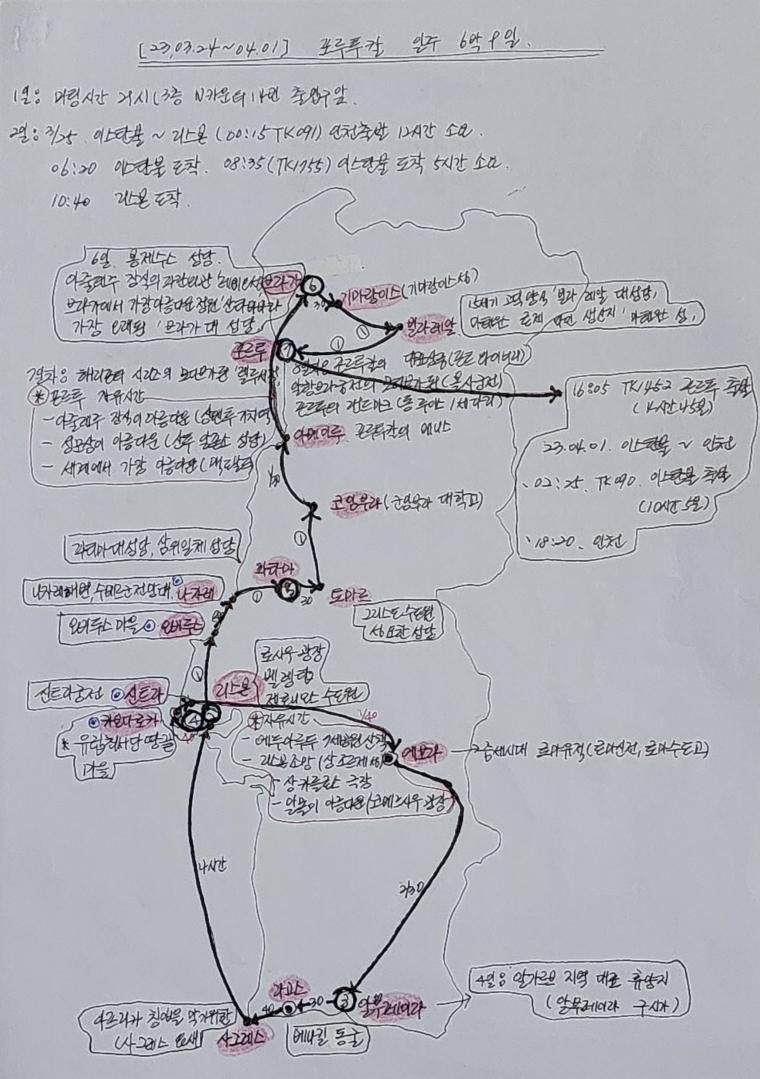 [23.03.24~04.01] 포루투칼 일주 6박 9일.
1일: 미팅시간 21시 (3층 N카운터 14번 출입구앞.
2일: 3/25. 이스탄불 ~ 리스본 (00:15 TK091) 인천출발 12시간 소요.
06:20 이스탄불 도착. 08:35 (TK1755) 이스탄불 도착 5시간 소요.
10:40 리스본 도착.
6일. 봉제수스 성당.
아줄레주 장식의
브라가에서 가장 아름다운 정원 산타바바라
가장 오래된 '브라가 대 성당'
브라가
6
기마랑이스 (기마랑이스성)
빌라레알
마테우스
포르투
7
7일차: 해리포터 시리즈의 모티브가된
* 포르투 자유시간
- 아줄레주 장식이 아름다운 (상벤투 기차역)
- 성모상이 아름다운
- 세계에서 가장 아름다운 (맥도날드)
포르투의 랜드마크 (동 루이스 1세다리)
아베이루 포르투칼의 베니스
16:05 TK1452 포르투 출발
(4시간 45분)
23.04.01. 이스탄불 ~ 인천
02:25. TK090. 이스탄불 출발
(10시간 5분)
18:20. 인천
1/30
코임브라 (코임브라 대학교)
파티마 대성당, 삼위일체 성당
파티마
5
30
토마르
그리스도수도원
성요한 성당
나자레해변, 수베르쿠전망대.
나자레
오비두스 마을
오비두스
로시우 광장
벨렝탑
제로니모스 수도원
리스본
신트라궁전
신트라
카보다로카
* 유럽최서단 땅끝
마을
* 자유시간
- 에두아르두 7세공원 산책
- 리스본 조망 (상 조르제 성)
- 상 카를로스 극장
- 일몰이 아름다운 (코메르시우 광장)
1/40
에보라
고급세시대 로마유적 (로마신전, 로마수도교)
4시간
2/30
라고스
30
3
알부페이라
4일: 알가르브 지역 대표 휴양지
(알부페이라 구시가)
40
사그레스
아프리카 침입을 막기위한
(사그레스 요새)
베나길 동굴